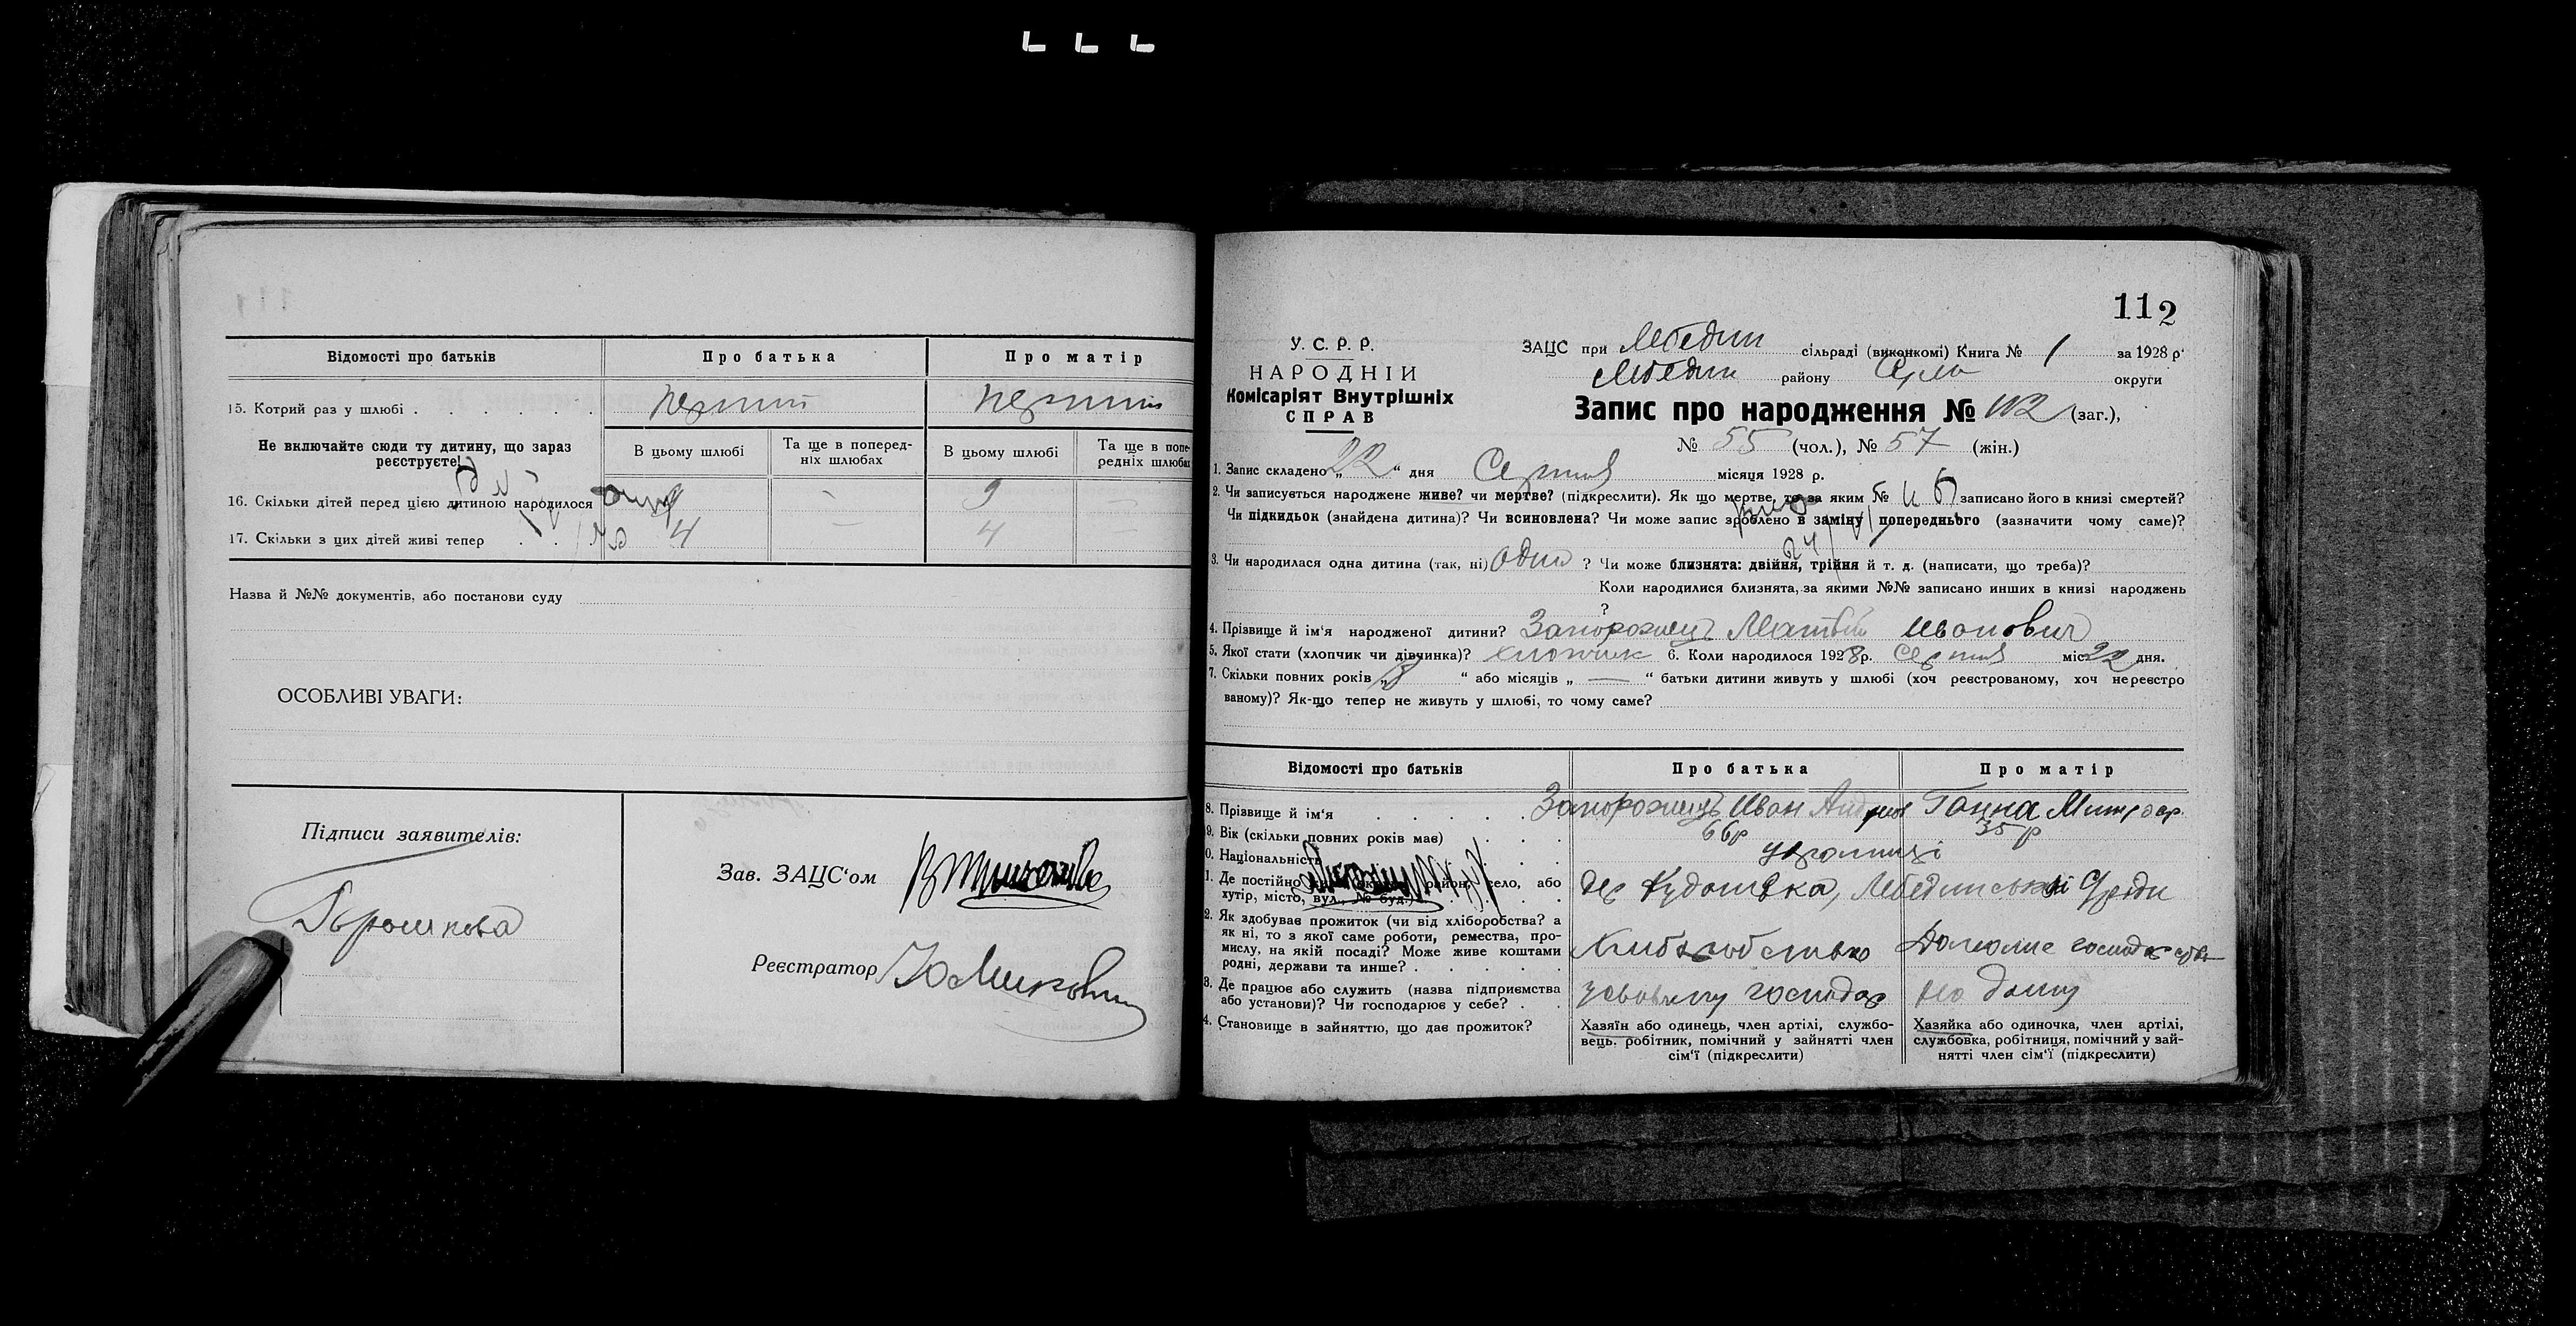 Відомості про батьків
Про батька
Про матір
15. Котрий раз у шлюбі
первий
первий
Не включайте сюди ту дитину, що зараз реєструєте!
В цьому шлюбі
Та ще в поперед-
ніх шлюбах
В цьому шлюбі
Та ще в попе-
редніх шлюбах
16. Скільки дітей перед цією дитиною народилося
9
—
9
17. Скільки з цих дітей живі тепер
4
—
4
Назва й №№ документів, або постанови суду
ОСОБЛИВІ УВАГИ:
Підписи заявителів:
Зав. ЗАЦС'ом
Реєстратор
112
У. С. Р. Р.
НАРОДНІЙ
Комісаріят Внутрішніх
СПРАВ
ЗАЦС при Лебедин сільраді (виконкомі) Книга № 1 за 1928 р.
Лебедин району округи
Запис про народження № 112 (заг.),
№ 55 (чол.), № 57 (жін.)
1. Запис складено „22“ дня Серпня місяця 1928 р.
2. Чи записується народжене живе? чи мертве? (підкреслити). Як що мертве, то за яким № записано його в книзі смертей?
Чи підкидьок (знайдена дитина)? Чи всиновлена? Чи може запис зроблено в заміну попереднього (зазначити чому саме)?
3. Чи народилася одна дитина (так, ні) одна ? Чи може близнята: двійня, трійня й т. д. (написати, що треба)?
Коли народилися близнята, за якими №№ записано инших в книзі народжень
?
4. Прізвище й ім'я народженої дитини? Запорожець Матвій Иванович
5. Якої стати (хлопчик чи дівчинка)? хлопчик 6. Коли народилося 1928 р. Серпня міс. 22 дня.
7. Скільки повних років „ “ або місяців „ — “ батьки дитини живуть у шлюбі (хоч реєстрованому, хоч нереєстро
ваному)? Як-що тепер не живуть у шлюбі, то чому саме?
Відомості про батьків
Про батька
Про матір
8. Прізвище й ім'я
Запорожець Иван Андриев
Ганна
9. Вік (скільки повних років має)
66р
35р
0. Національність
українці
1. Де постійно район, село, або
хутір, місто, вул., № буд.)
Лебединської
2. Як здобуває прожиток (чи від хліборобства? а
як ні, то з якої саме роботи, ремества, про-
мислу, на якій посаді? Може живе коштами
родні, держави та инше?
Хліборобством
Домашнє
3. Де працює або служить (назва підприємства
або установи)? Чи господарює у себе?
у своєму господар
на дому
4. Становище в зайняттю, що дає прожиток?
Хазяїн або одинець, член артілі, службо-
вець. робітник, помічний у зайнятті член
сім'ї (підкреслити)
Хазяйка або одиночка, член артілі,
службовка, робітниця, помічний у зай-
нятті член сім'ї (підкреслити)